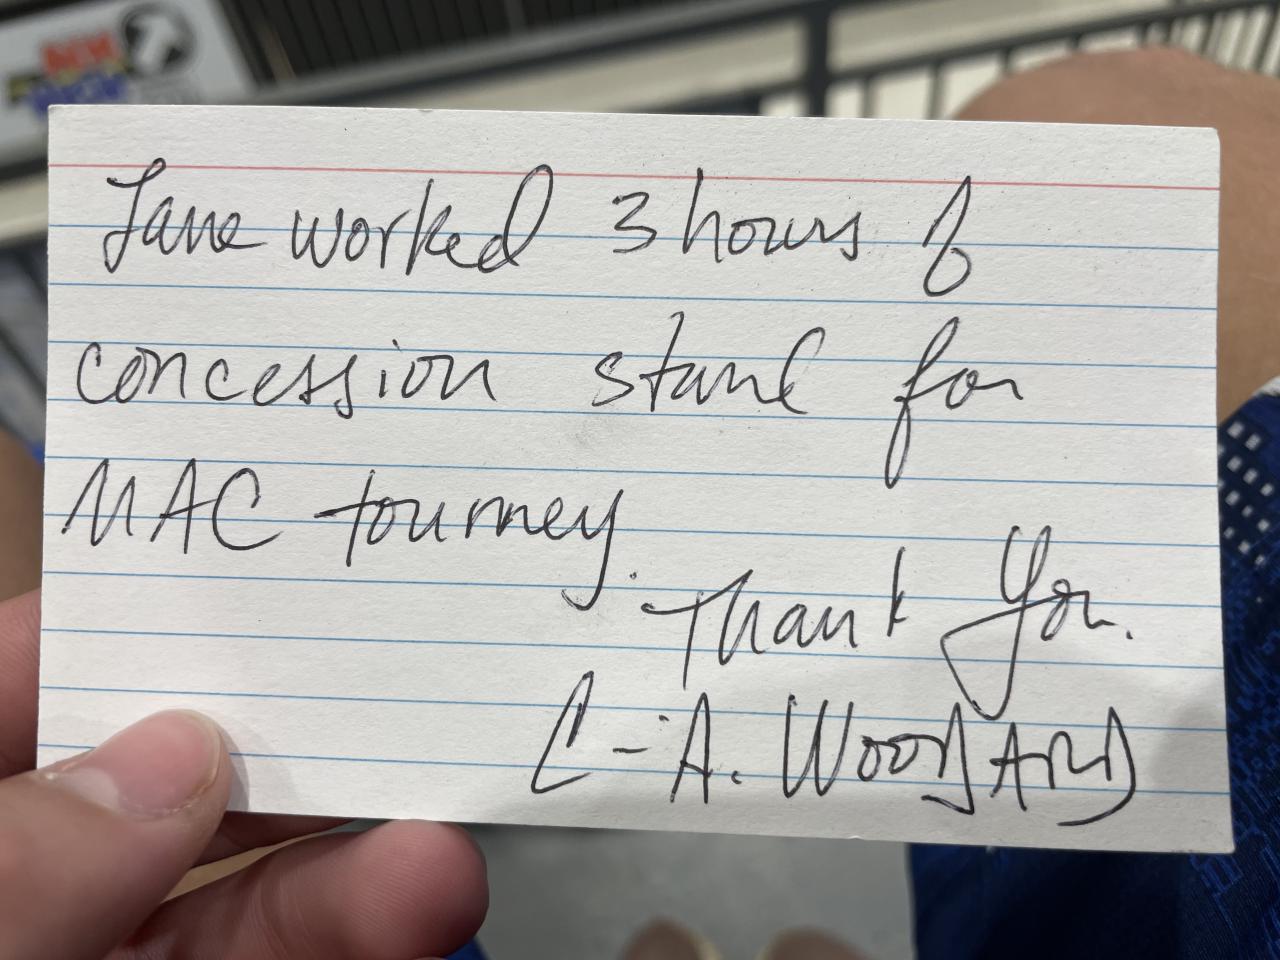 Jane worked 3 hours of
concession stand for
MAC tourney.
Thank You.
L-A. WOODARD